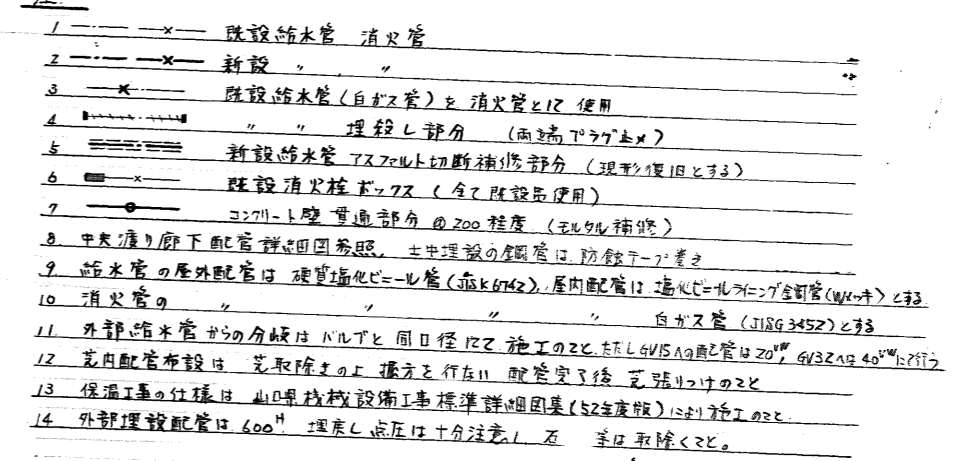 1 既設給水管 消火管
2 新設 〃 〃
3 既設給水管(白ガス管)を消火管として使用
4 〃 〃 埋殺し部分 (両端プラグ止メ)
5 新設給水管 アスファルト切断補修部分 (現形復旧とする)
6 既設消火栓ボックス (全て既設品使用)
7 コンクリート壁貫通部分 @200程度 (モルタル補修)
8 中央渡り廊下配管詳細図参照、土中埋設の鋼管は防蝕テープ巻き
9 給水管の屋外配管は硬質塩化ビニール管(JISK6742)、屋内配管は塩化ビニールライニング鋼管(Wメッキ)とする
10 消火管の 〃 〃 〃 〃 白ガス管(JISG3452)とする
11 外部給水管からの分岐はバルブと同口径にて施工のこと、ただしGV15への配管は20VW, GV32へは40VWにて行う
12 芝内配管布設は芝取除きの上掘方を行ない配管完了後芝張りつけのこと
13 保温工事の仕様は山口県機械設備工事標準詳細図集(52年度版)により施工のこと
14 外部埋設配管は600H 埋戻し点圧は十分注意し 石 等は取除くこと。